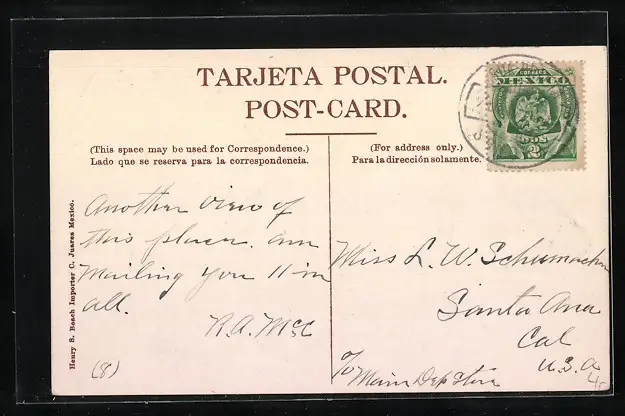 TARJETA POSTAL.
POST-CARD.
(This space may be used for Correspondence.)
Lado que se reserva para la correspondencia.
(For address only.)
Para la dirección solamente.
CORREOS
MEXICO
DOS
2
Henry S. Beach Importer C. Juares Mexico.
Another view of
this place. am
Mailing you 11 in
all.
R.A. McC
(8)
Miss L. W. Schumacher
Santa Ana
Cal
U.S.A
c/o
Main Dep Store